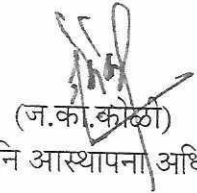 (ज.का.कोळी)
नि आस्थापना अधि